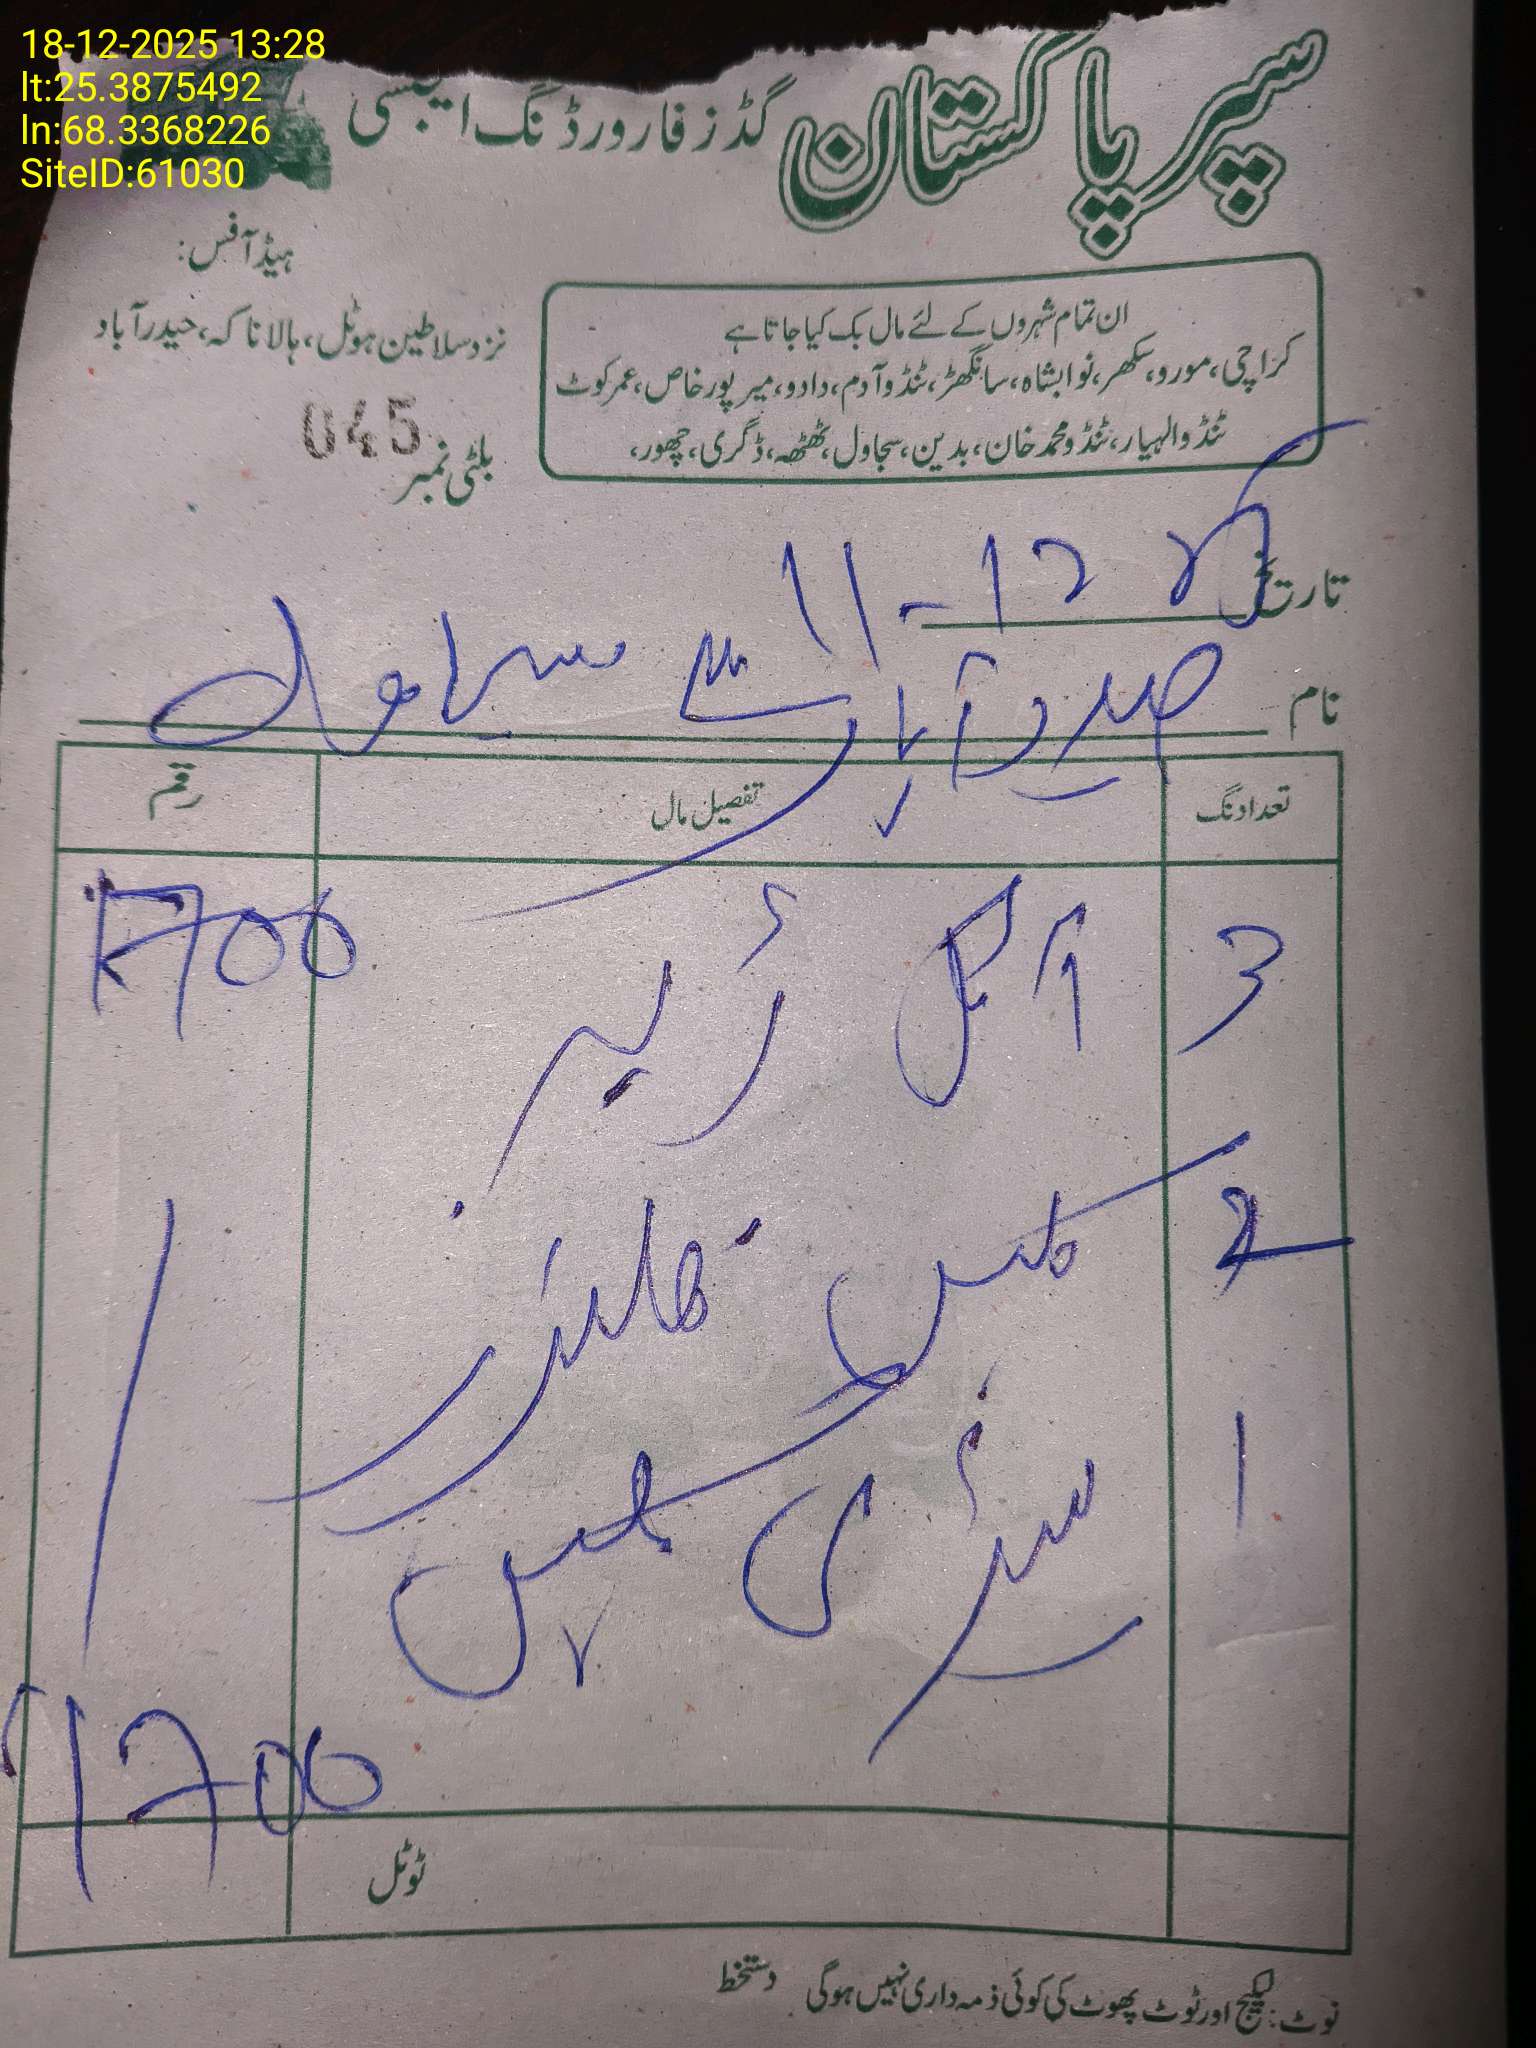 18-12-2025 13:28
lt:25.3875492
ln:68.3368226
SiteID:61030
سپر پاکستان گڈز فارورڈنگ ایجنسی
ہیڈ آفس:
نزد سلاطین ہوٹل، ہالا ناکہ، حیدرآباد
ان تمام شہروں کے لئے مال بک کیا جاتا ہے
کراچی، مورو، سکھر، نوابشاہ، سانگھڑ، ٹنڈو آدم، دادو، میرپور خاص، عمرکوٹ
ٹنڈو الہیار، ٹنڈو محمد خان، بدین، سجاول، ٹھٹھہ، ڈگری، چھور،
بلٹی نمبر 045
تاریخ 11-12
نام حیدرآباد سے سجاول
تعداد نگ تفصیل مال رقم
3 1700
2
1
1700
ٹوٹل
نوٹ: لیکج اور ٹوٹ پھوٹ کی کوئی ذمہ داری نہیں ہوگی دستخط